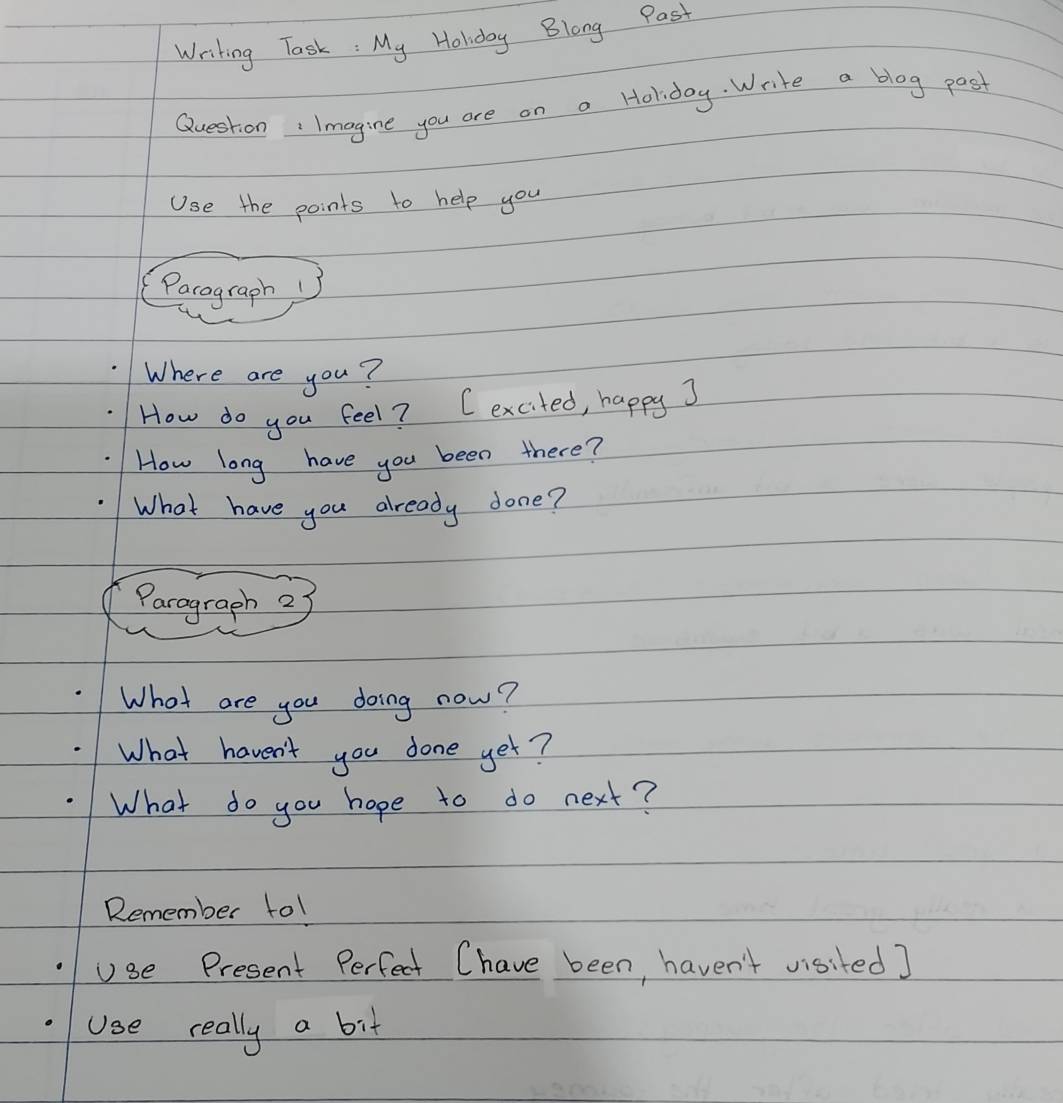 Writing Task : My Holiday Blong Past
Question : Imagine you are on a Holiday. Write a blog past
Use the points to help you
{Paragraph 1}
• Where are you?
• How do you feel? [excited, happy]
• How long have you been there?
• What have you already done?
{Paragraph 2}
• What are you doing now?
• What haven't you done yet?
• What do you hope to do next?
Remember to!
• Use Present Perfect [have been, haven't visited]
• Use really a bit